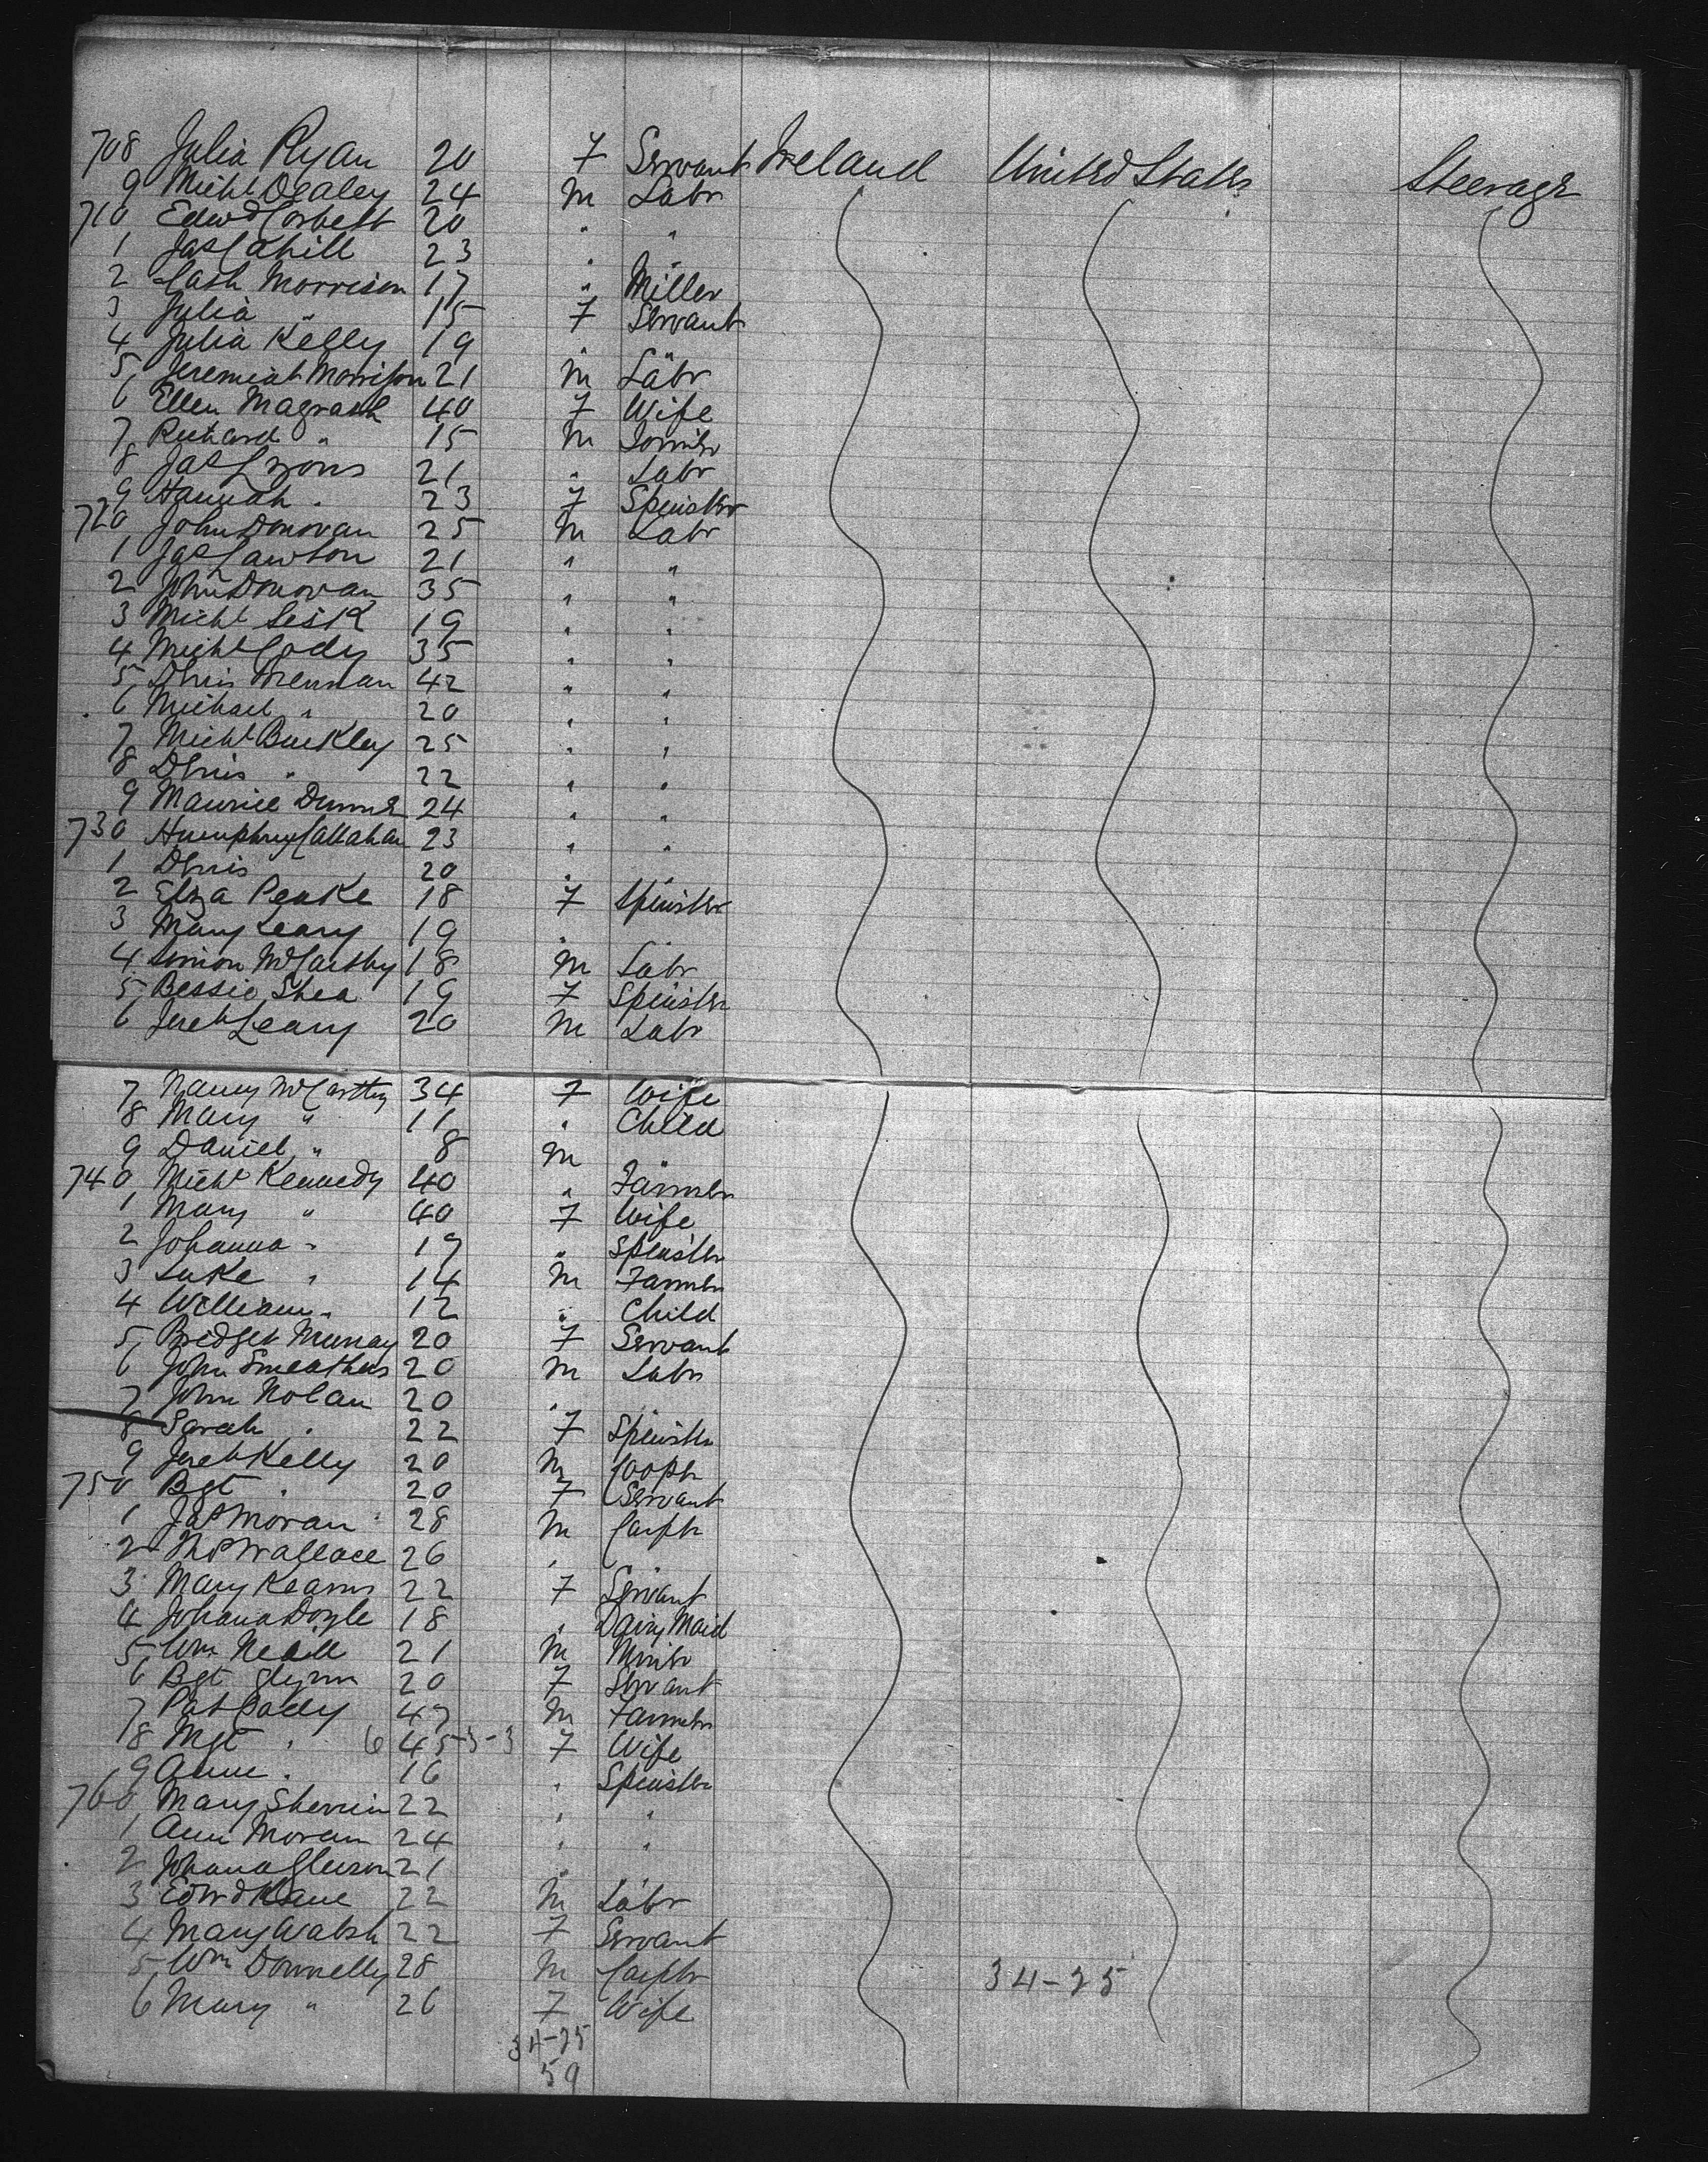 708 Julia Ryan 20 F Servant Ireland United States Steerage
9 Michl Dealey 24 M Labr
710 Edwd Corbett 20 " "
1 Jas Cahill 23 " "
2 Cath Morrison 17 " Miller
3 Julia " 15 F Servant
4 Julia Kelly 19 " "
5 Jeremiah Morrison 21 M Labr
6 Ellen Magrath 40 F Wife
7 Richard " 15 M
8 Jas Lyons 21 " Labr
9 Hannah " 23 F Spinster
720 John Donovan 25 M Labr
1 Jas Lawton 21 " "
2 John Donovan 35 " "
3 Michl Sisk 19 " "
4 Michl Cody 35 " "
5 Denis Brennan 42 " "
6 Michael " 20 " "
7 Michl Buckley 25 " "
8 Denis " 22 " "
9 Maurice Dunne 24 " "
730 Humphrey Callahan 23 " "
1 Denis 20 " "
2 Eliza Peake 18 F Spinster
3 Mary Leary 19 "
4 Simon McCarthy 18 M Labr
5 Bessie Shea 19 F Spinster
6 Jereh Leary 20 M Labr
7 Nancy McCarthy 34 F Wife
8 Mary " 11 " Child
9 Daniel " 8 M "
740 Michl Kennedy 40 " Farmer
1 Mary " 40 F Wife
2 Johanna " 19 " Spinster
3 Luke " 14 M Farmer
4 William " 12 " Child
5 Bridget Murray 20 F Servant
6 John Smeathers 20 M Labr
7 John Nolan 20 " "
8 Sarah " 22 F Spinster
9 Jereh Kelly 20 M Coopr
750 Bgt " 20 F Servant
1 Jas Moran 28 M Carptr
2 Thos Wallace 26 " "
3 Mary Kearns 22 F Servant
4 Johana Doyle 18 " Dairy Maid
5 Wm Neill 21 M Miner
6 Bgt Glynn 20 F Servant
7 Pat Cody 47 M Farmer
8 Mgt " 6 45-3-3 F Wife
9 Anne " 16 " Spinster
760 Mary Shervin 22 " "
1 Ann Moran 24 " "
2 Johana Gleeson 21 " "
3 Edwd Kane 22 M Labr
4 Mary Walsh 22 F Servant
5 Wm Donnelly 28 M Carptr 34-25
6 Mary " 26 F Wife
34-25
59